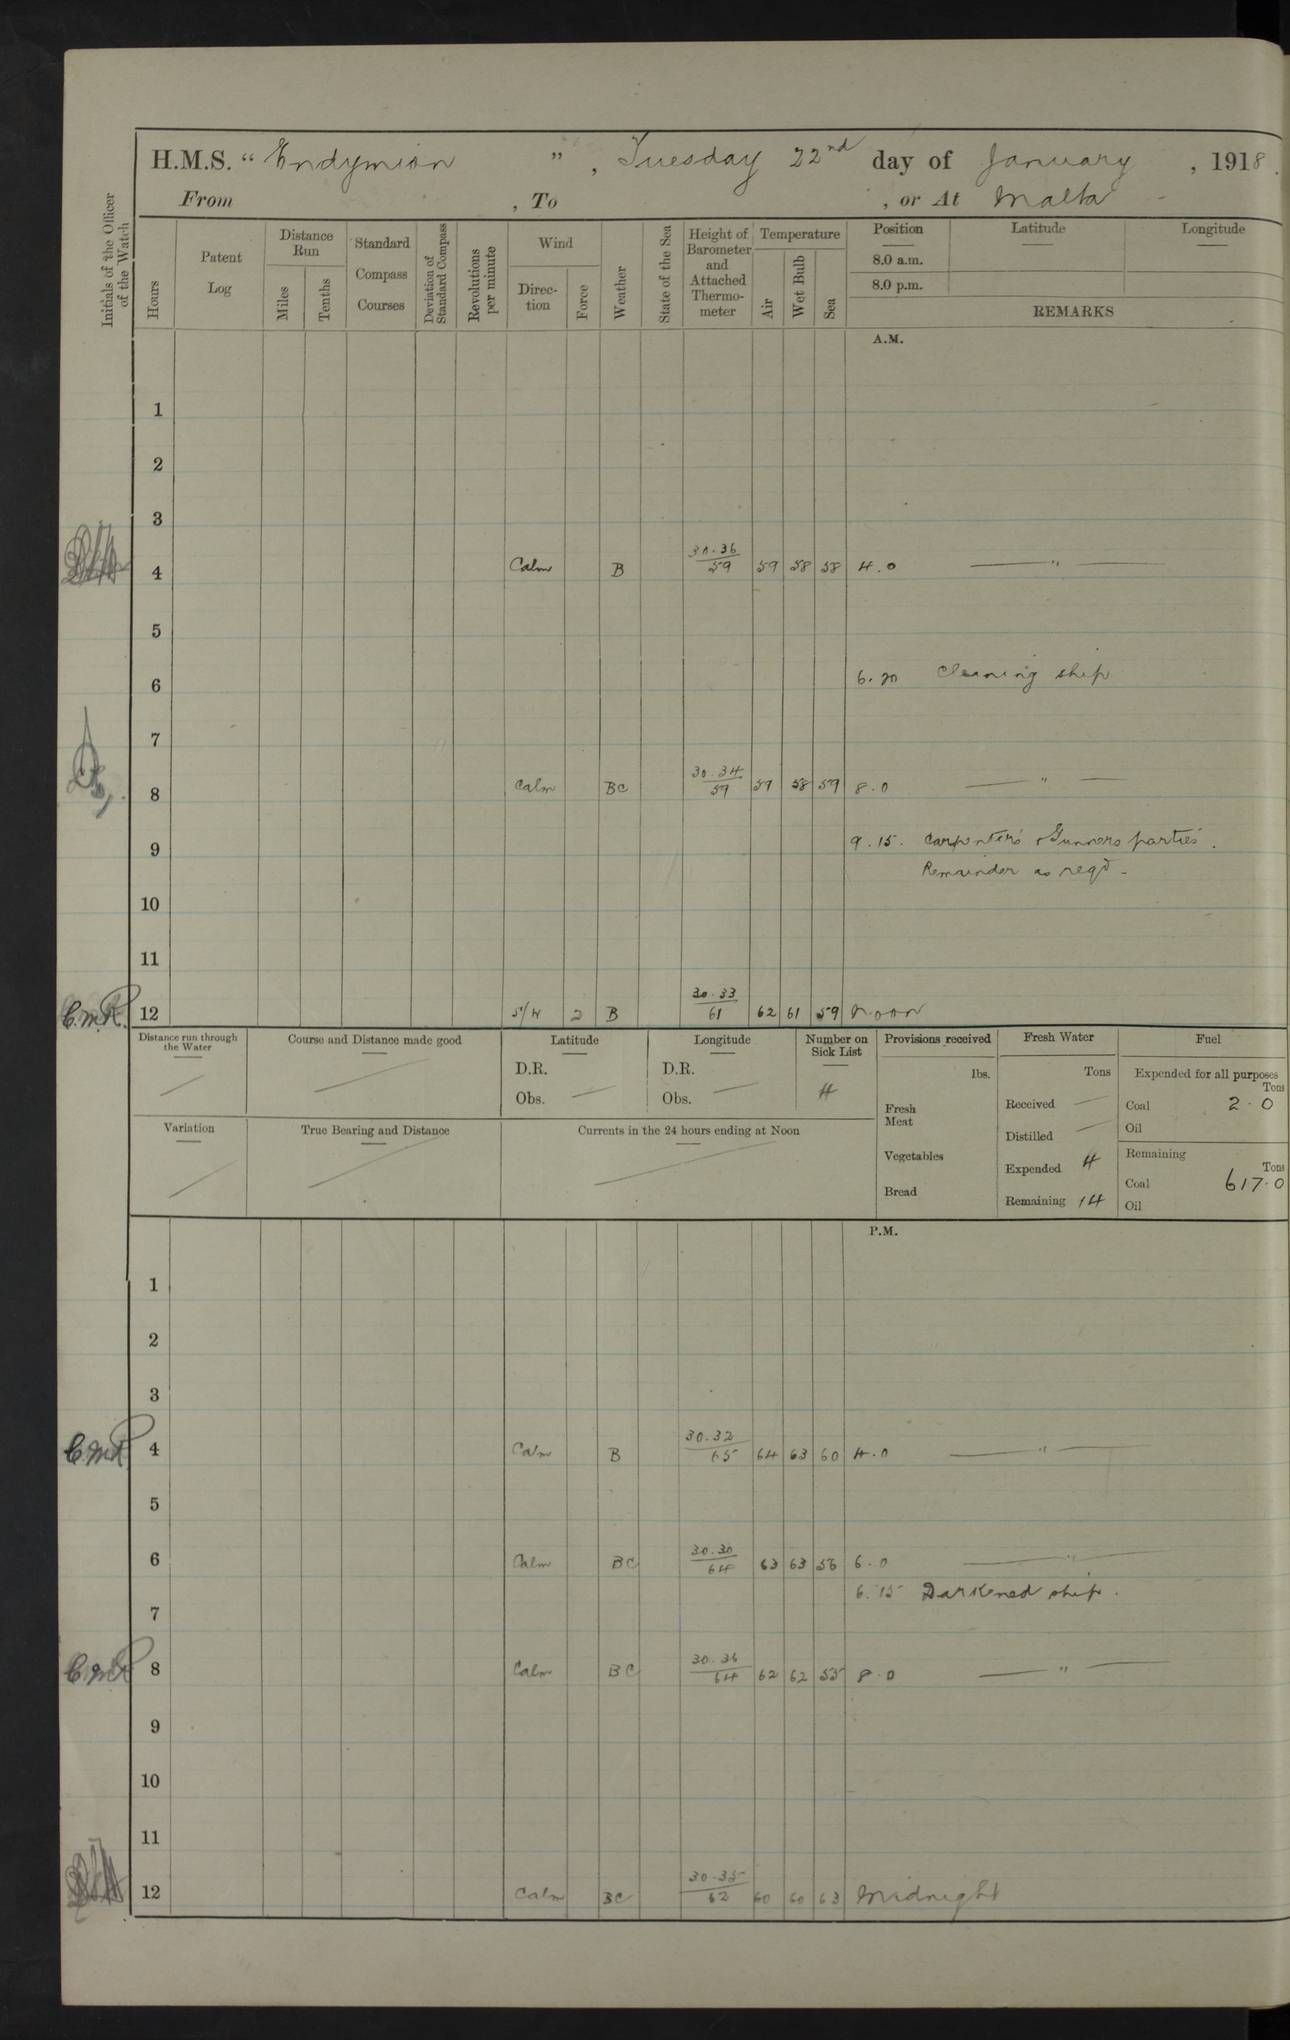 H.M.S. “ Endymion ” , Tuesday 22nd day of January , 1918.
From , To , or At Malta
Initials of the Officer of the Watch
Hours
Patent Log
Distance Run
Miles
Tenths
Standard Compass Courses
Deviation of Standard Compass
Revolutions per minute
Wind
Direc-tion
Force
Weather
State of the Sea
Height of Barometer and Attached Thermo-meter
Temperature
Air
Wet Bulb
Sea
Position Latitude Longitude
8.0 a.m.
8.0 p.m.
REMARKS
A.M.
1
2
3
4 Calm B 30.36/59 59 58 58 4.0 — " —
5
6 6.20 Cleaning ship
7
8 Calm BC 30.34/59 59 58 59 8.0 — " —
9 9.15. Carpenters & Gunners parties.
Remainder as reqd -
10
11
C.M.R. 12 S/W 2 B 30.33/61 62 61 59 Noon
Distance run through the Water
Course and Distance made good
Latitude
D.R.
Obs. —
Longitude
D.R.
Obs. —
Number on Sick List
4
Provisions received
lbs.
Fresh Meat
Vegetables
Bread
Fresh Water
Tons
Received —
Distilled —
Expended 4
Remaining 14
Fuel
Expended for all purposes
Tons
Coal 2.0
Oil
Remaining
Tons
Coal 617.0
Oil
Variation
True Bearing and Distance
Currents in the 24 hours ending at Noon
P.M.
1
2
3
C.M.R. 4 Calm B 30.32/65 64 63 60 4.0 — " —
5
6 Calm BC 30.30/64 63 63 56 6.0 — " —
6.15 Darkened ship.
7
C.M.R. 8 Calm BC 30.36/64 62 62 55 8.0 — " —
9
10
11
12 Calm BC 30.35/62 60 60 63 Midnight